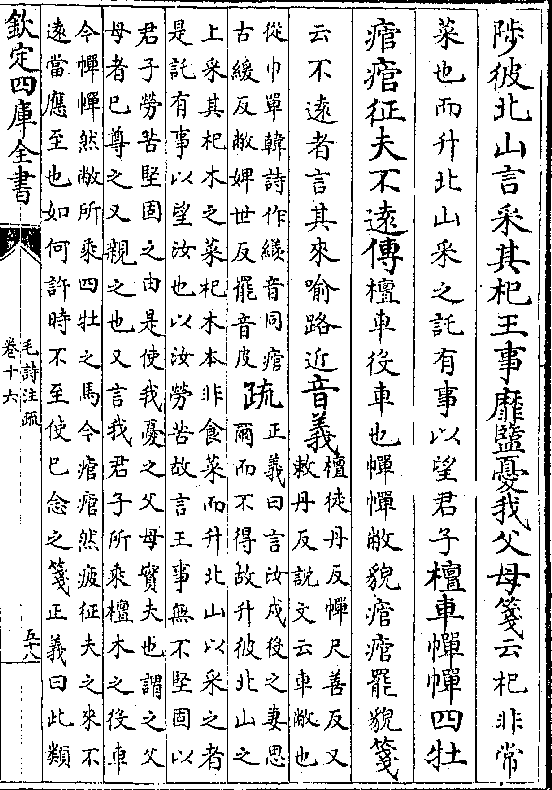 陟彼北山言采其杞王事靡盬憂我父母箋云杞非常
菜也而升北山采之託有事以望君子檀車幝幝四牡
痯痯征夫不遠傳檀車役車也幝幝敝貌痯痯罷貌箋
云不遠者言其來喻路近音義檀徒丹反幝尺善反又
敕丹反說文云車敝也
從巾單韓詩作綫音同痯
古緩反敝婢世反罷音皮疏正義曰言汝戍役之妻思
爾而不得故升彼北山之
上采其杞木之菜杞木本非食菜而升北山以采之者
是託有事以望汝也以汝勞苦故言王事無不堅固以
君子勞苦堅固之由是使我憂之父母實夫也謂之父
母者已尊之又親之也又言我君子所乘檀木之役車
今幝幝然敝所乘四牡之馬今痯痯然疲征夫之來不
遠當應至也如何許時不至使已念之箋正義曰此類
欽定四庫全書
毛詩注疏
卷十六
五十八